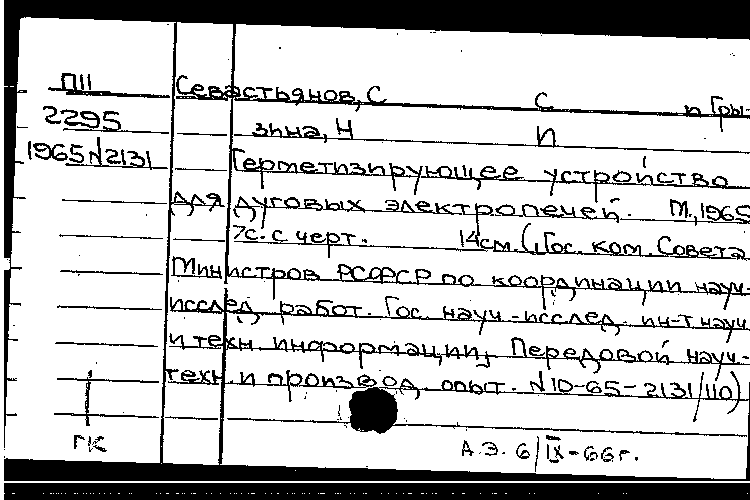 П11 Севастьянов, С С и Гры-
2295 зина, Н И
1965 №2131 Герметизирующее устройство
для дуговых электропечей. М.,1965
7с. с черт. 14см. (Гос. ком. Совета
Министров РСФСР по координации науч-
исслед. работ. Гос. науч-исслед. ин-т науч
и техн. информации. Передовой науч.-
техн. и производ. опыт. №10-65-2131/110)
ГК А.Э. 6/IX-66г.